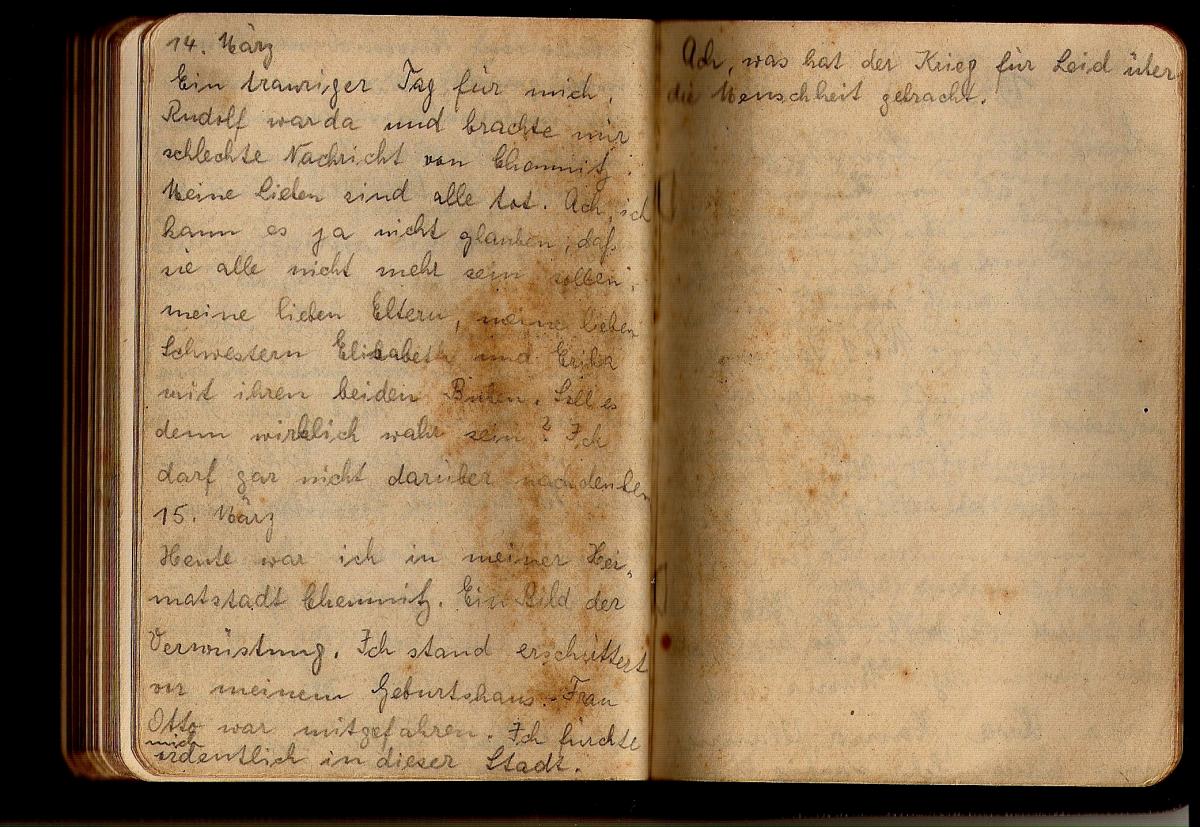 14. März
Ein trauriger Tag für mich.
Rudolf war da und brachte mir
schlechte Nachricht von Chemnitz.
Meine Lieben sind alle tot. Ach, ich
kann es ja nicht glauben, daß
sie alle nicht mehr sein sollen,
meine lieben Eltern, meine lieben
Schwestern Elisabeth und Erika
mit ihren beiden Buben. Soll es
denn wirklich wahr sein? Ich
darf gar nicht darüber nachdenken
15. März
Heute war ich in meiner Hei-
matstadt Chemnitz. Ein Bild der
Verwüstung. Ich stand erschüttert
vor meinem Geburtshaus. Frau
Otto war mitgefahren. Ich fürchte
mich
ordentlich in dieser Stadt.
Ach, was hat der Krieg für Leid über
die Menschheit gebracht.